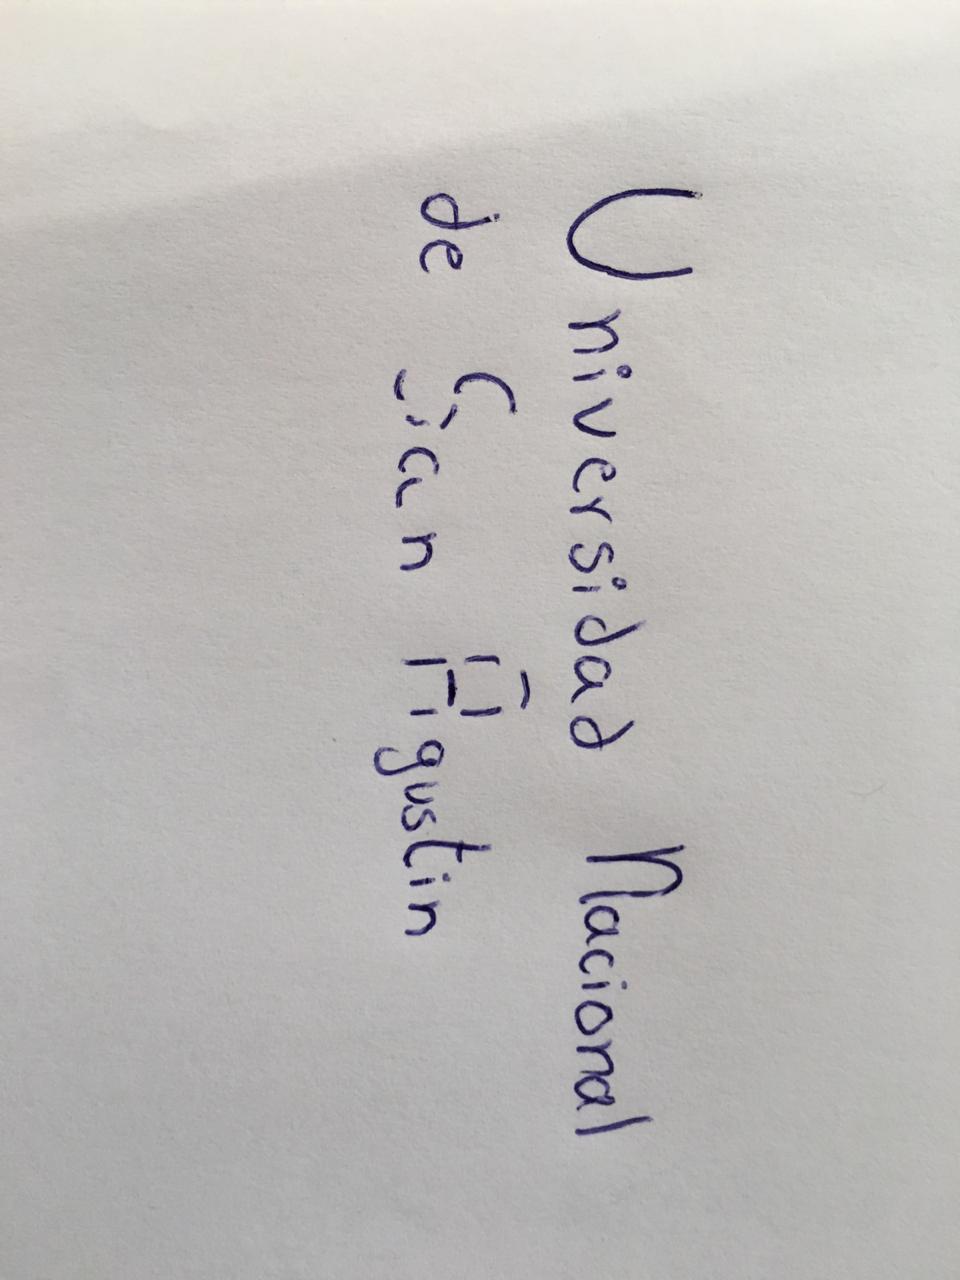 Universidad Nacional
de San Agustin